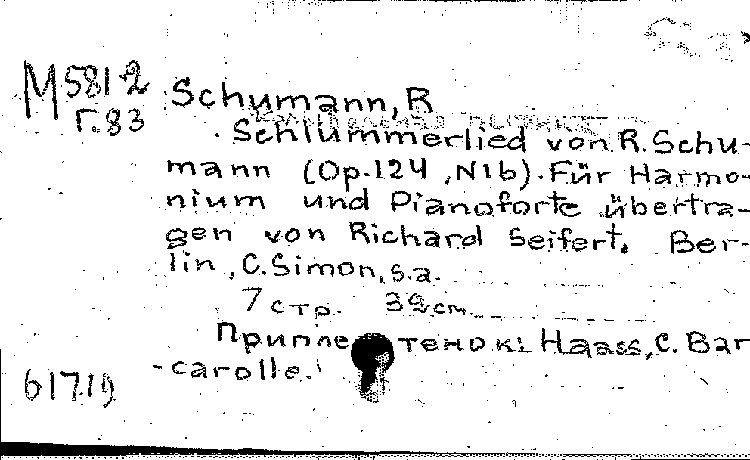 M581-2
Г.83
Schumann, R
Schlummerlied von R. Schu-
mann (Op. 124, N16). Für Harmo-
nium und Pianoforte übertra-
gen von Richard Seifert. Ber-
lin, C. Simon, s.a.
7 стр. 32 cm.
Припле тено к: Haass, C. Bar
-carolle.
61719